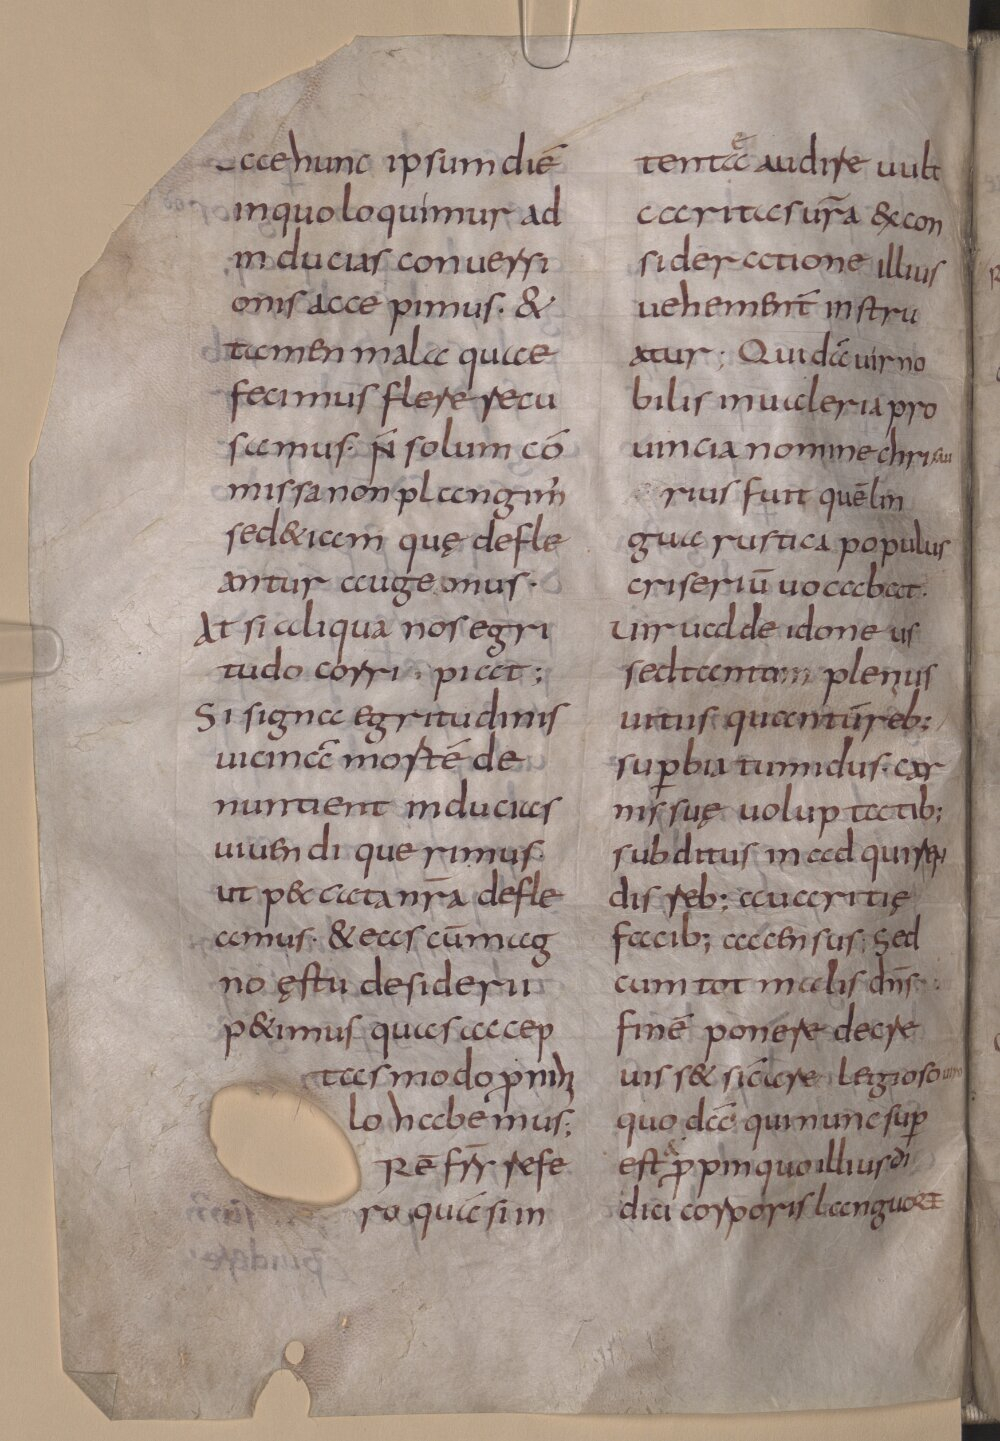 Ecce nunc ipsum diē
in quo loquimur ad
inducias conuersi
onis acce pimus· &
tamen mala quae
fecimus flere recu
samus· ñ solum cō
missa non plangim̄
sed & iam quę defle
antur augemus·
At si aliqua nos egri
tudo corri pi at;
Si signa egritudinis
uicinā mortē de
nuntient inducias
uiuendi querimus·
ut p& acta nr̄a defle
amus· & eas cūmag
no ęstu desiderii
p&imus quas accep
tas modo p̄ nih̄
lo habemus;
Rē fr̄r̄ refe
ro quā si in
tentae audire uult
caritas ur̄a & con
sideratione illius
uehement̄ instru
atur; Quidā uir no
bilis in ualeria pro
uincia nomine chrisau
rius fuit quē lin
gua rustica populus
criseriū uocabat·
Uir ualde idone us
sed tantam plenus
uitus quantū reb;
suꝑbia tumidus· car
nis suę uoluptatib;
subditus in adquiren
dis reb; auaritię
facib; accensus; Sed
cum tot malis dn̄s
finē ponere decre
uis s& sīcūre legiosouiro
quo dcā qui nunc suꝑ
est ꝓ pinquo illius di
dici corporis languore